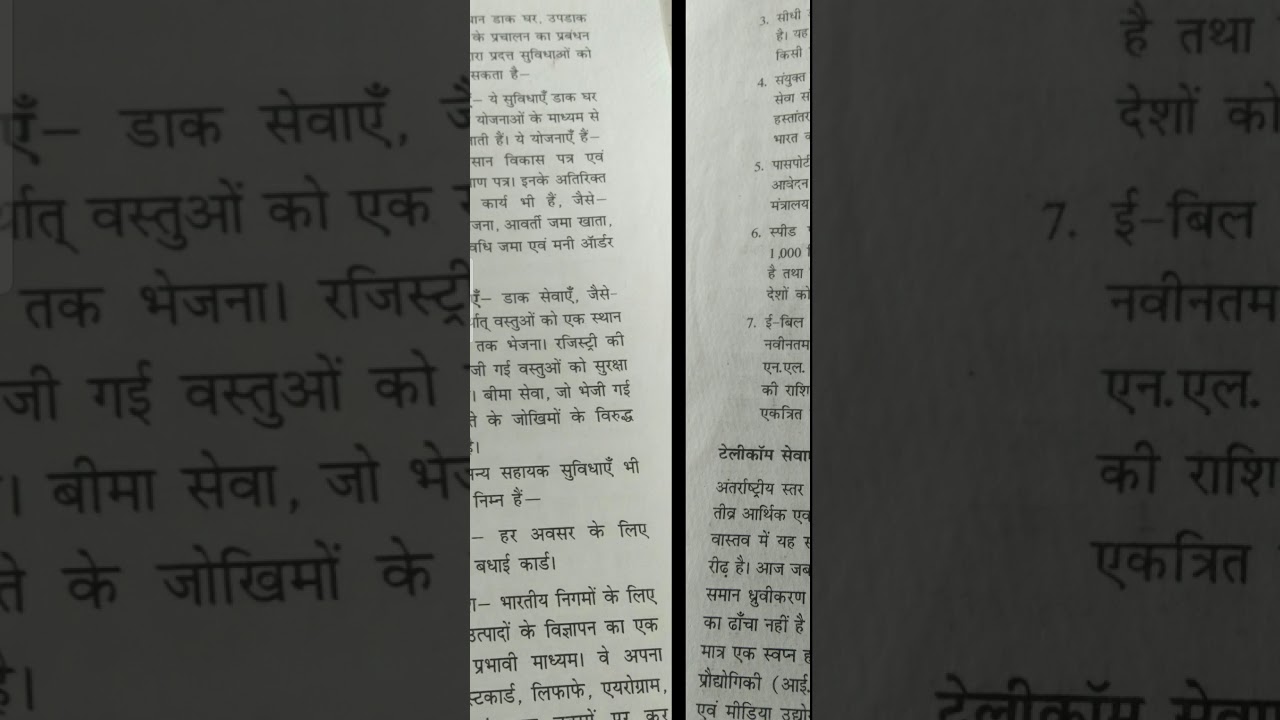 डाक घर, उपडाक
के प्रचालन का प्रबंधन
प्रदत्त सुविधाओं को
सकता है—
— ये सुविधाएँ डाक घर
योजनाओं के माध्यम से
जाती हैं। ये योजनाएँ हैं—
विकास पत्र एवं
पत्र। इनके अतिरिक्त
कार्य भी हैं, जैसे—
आवर्ती जमा खाता,
जमा एवं मनी ऑर्डर
— डाक सेवाएँ, जैसे-
वस्तुओं को एक स्थान
तक भेजना। रजिस्ट्री की
गई वस्तुओं को सुरक्षा
। बीमा सेवा, जो भेजी गई
के जोखिमों के विरुद्ध
सहायक सुविधाएँ भी
निम्न हैं—
— हर अवसर के लिए
बधाई कार्ड।
— भारतीय निगमों के लिए
उत्पादों के विज्ञापन का एक
प्रभावी माध्यम। वे अपना
लिफाफे, एयरोग्राम,
पर कर
3. सीधी
है। यह
किसी
4. संयुक्त
सेवा
भारत
5.
आवेदन
मंत्रालय
6. स्पीड
1,000
है तथा
देशों को
7. ई-बिल
नवीनतम
एन.एल.
की राशि
एकत्रित
टेलीकॉम
अंतर्राष्ट्रीय स्तर
तीव्र आर्थिक एवं
वास्तव में यह
रीढ़ है। आज जब
समान ध्रुवीकरण
का ढाँचा नहीं है
मात्र एक स्वप्न
प्रौद्योगिकी (आई.
एवं मीडिया
— डाक सेवाएँ,
वस्तुओं को एक
तक भेजना। रजिस्ट्री
गई वस्तुओं को
। बीमा सेवा, जो
के जोखिमों के
है तथा
देशों को
7. ई-बिल
नवीनतम
एन.एल.
की राशि
एकत्रित
टेलीकॉम